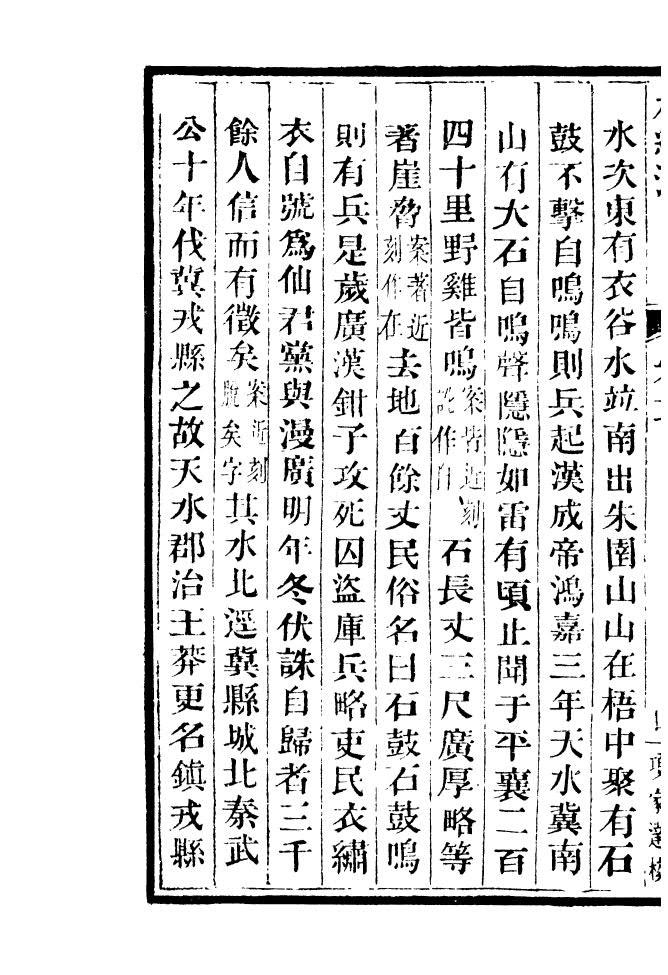 水次東有衣谷水竝南出朱圉山山在梧中聚有石
鼓不擊自鳴鳴則兵起漢成帝鴻嘉三年天水冀南
山有大石自鳴聲隱隱如雷有頃止聞于平襄二百
四十里野雞皆鳴案皆近刻訛作自石長丈三尺廣厚略等
著崖脅案著近刻作在去地百餘丈民俗名曰石鼓石鼓鳴
則有兵是歲廣漢鉗子攻死囚盜庫兵略吏民衣繡
衣自號爲仙君黨與漫廣明年冬伏誅自歸者三千
餘人信而有徵矣案近刻脫矣字其水北逕冀縣城北秦武
公十年伐冀戎縣之故天水郡治王莽更名鎮戎縣